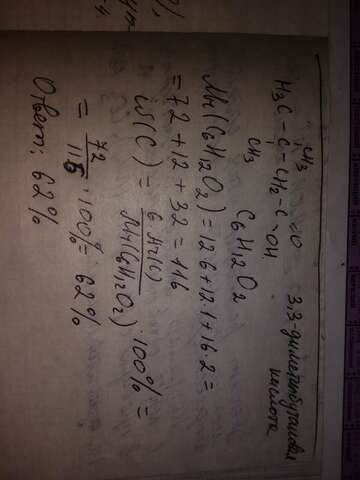 CH3
H3C - C - CH2 - C = O OH
CH3
3,3-диметилбутановая
кислота
C6H12O2
Mr(C6H12O2) = 12·6+12·1+16·2=
=72+12+32=116
ω(C) = 6 Ar(C) / Mr(C6H12O2) · 100% =
= 72 / 116 · 100% = 62%
Ответ: 62%